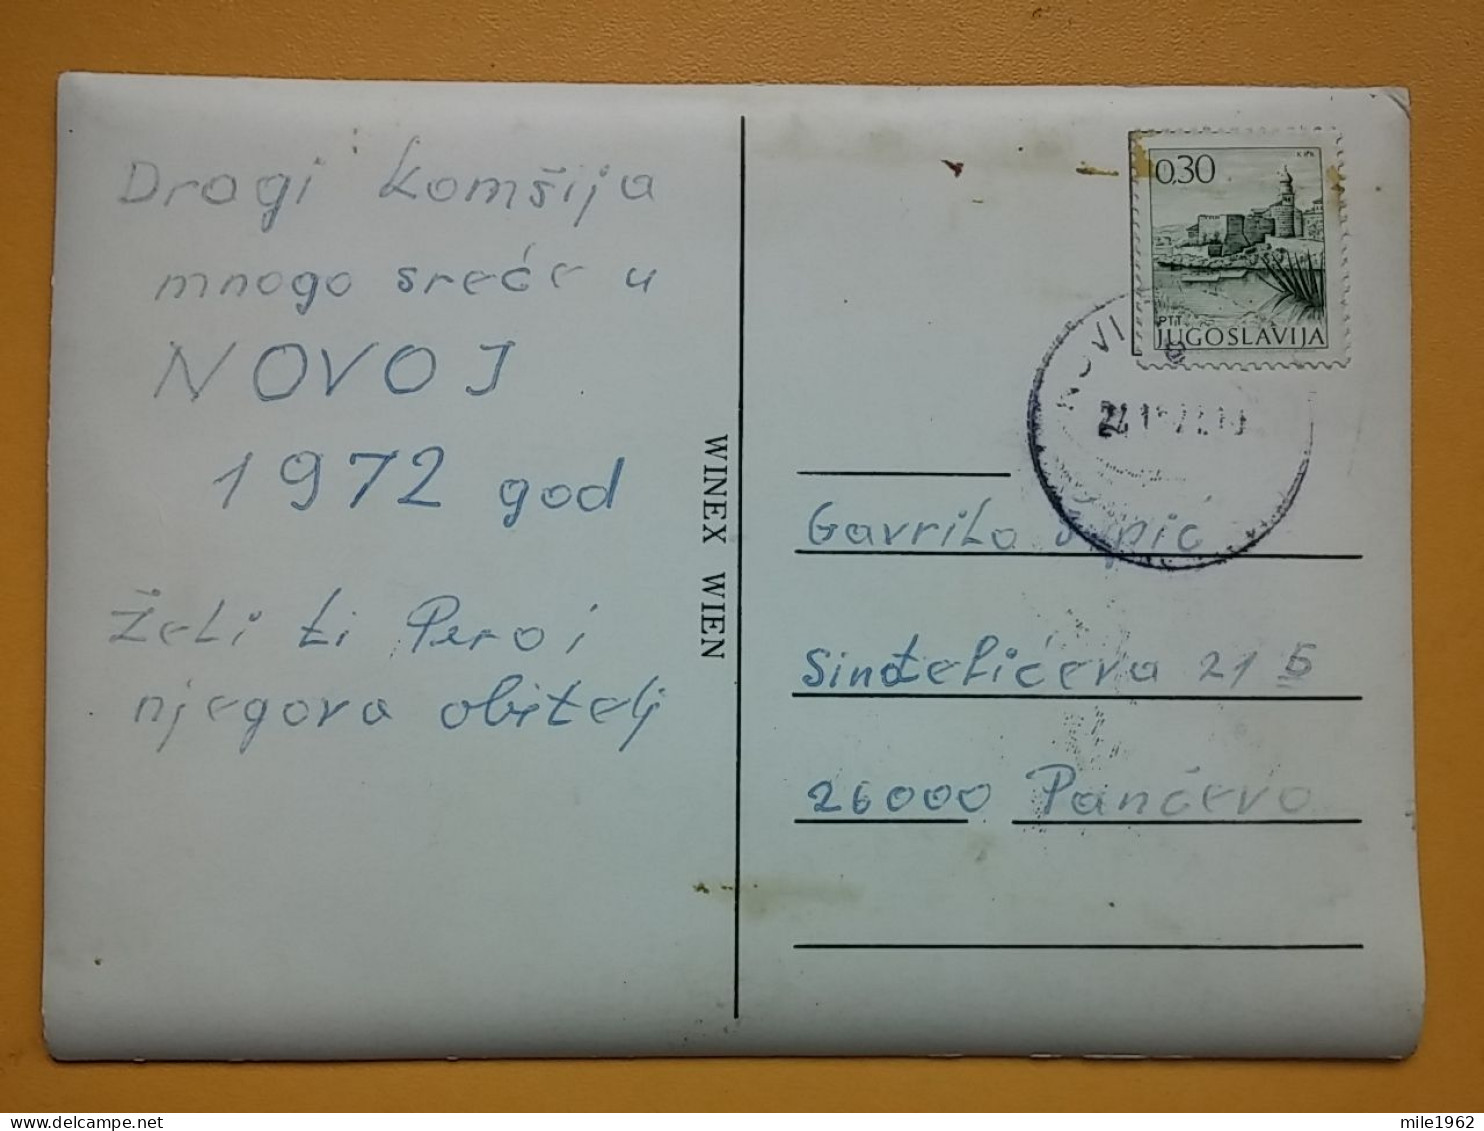 Dragi komšija
mnogo sreće u
NOVOJ
1972 god
Želi ti Pero i
njegova obitelj
WINEX WIEN
0,30
PTT
JUGOSLAVIJA
NOVI
Gavrilo
Sinđelićeva 21 5
26000 Pančevo
mile1962